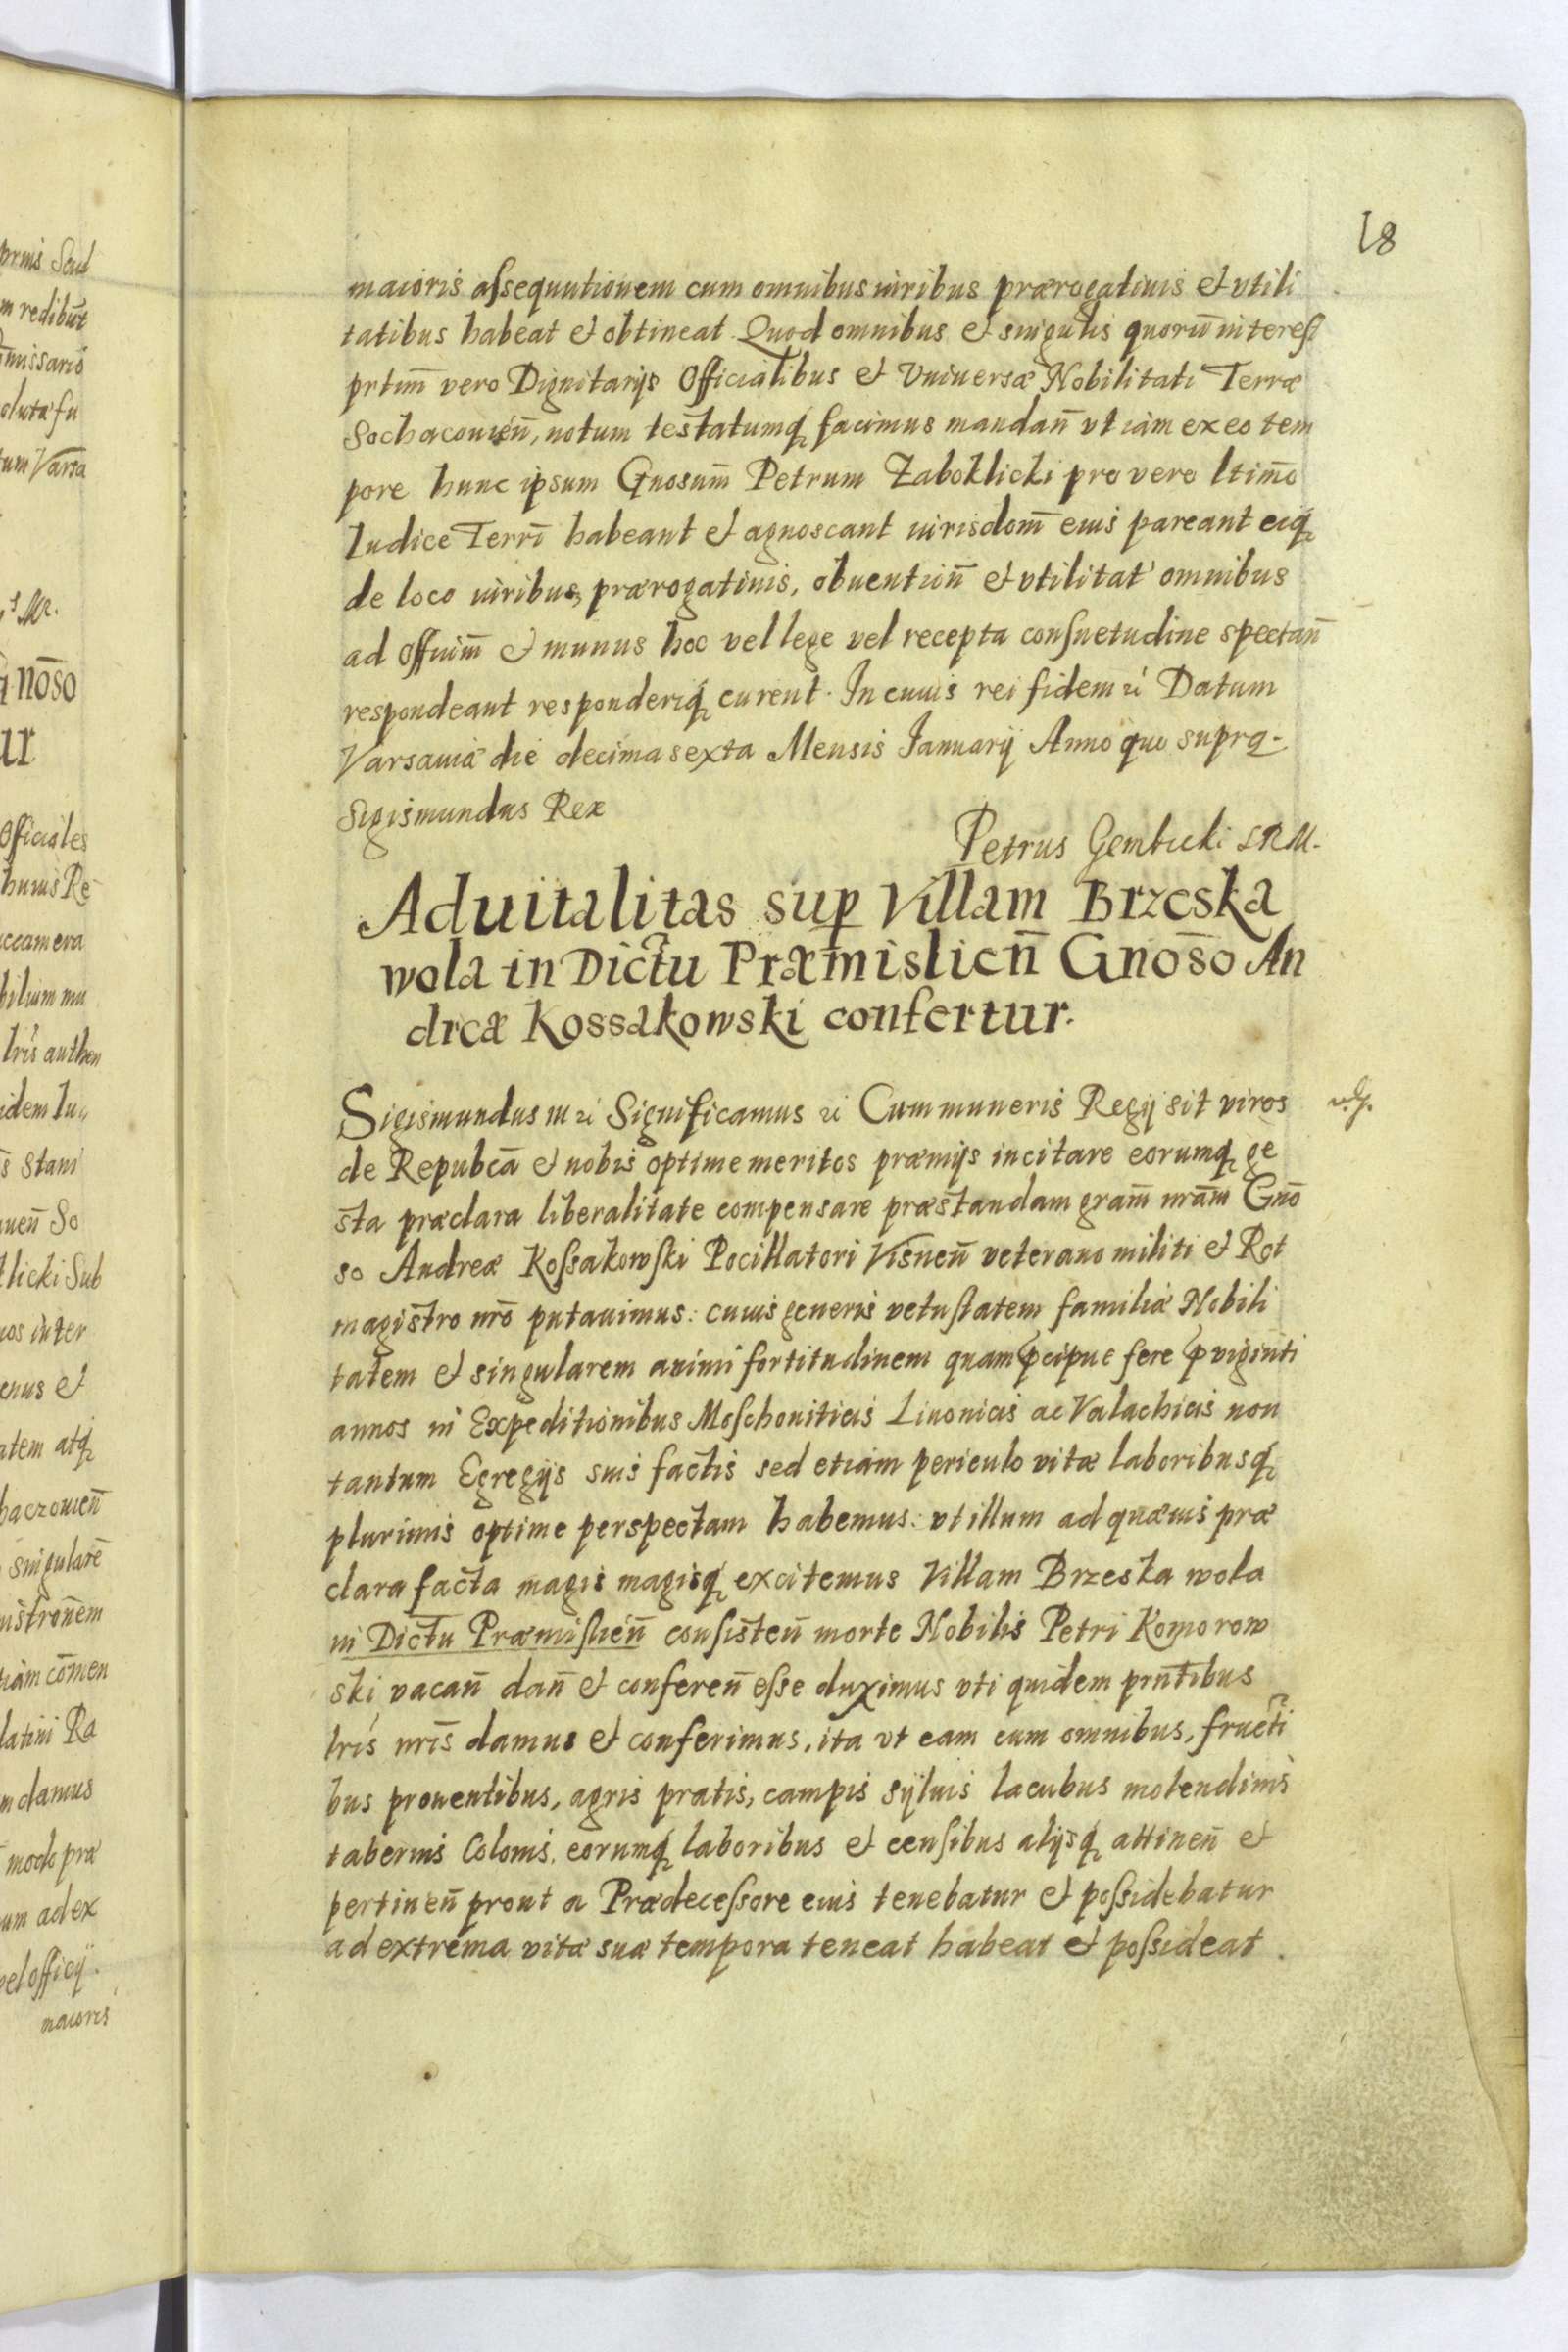 18
maioris assequutionem cum omnibus iuribus prærogatiuis et vtili
tatibus habeat et obtineat. Quod omnibus et singulis quorū interest
prtim̄ vero Dignitarijs Officialibus et Vniuersæ Nobilitati Terræ
Sochaconień, notum testatumq́ facimus mandan̄ vt iam ex eo tem
pore hunc ipsum Gnosum̄ Petrum Zaboklicki pro vero ltimō
Iudice Terrī habeant et agnoscant iurisdom̄ eius pareant eiq́
de loco iuribus, prærogatiuis, obuention̄ et vtilitat' omnibus
ad offium̄ et munus hoc vel lege vel recepta consuetudine spectan̄
respondeant responderiq́ curent. In cuius rei fidem ⁊ć Datum
Varsauiæ die decima sexta Mensis Ianuarij Anno quo supra.
Sigismundus Rex
Petrus Gembicki SRM.
Aduitalitas sup Villam Brzeska
wola in Dictu Præmislicn̄ Gnoso An
dreæ Kossakowski confertur.
Sigismundus III ⁊ć Significamus ⁊ć Cum muneris Regij sit viros
de Repubcā et nobis optime meritos præmijs incitare eorumq́ ge
sta præclara liberalitate compensare præstandam gram̄ nrām Gnō
so Andreæ Kossakowski Pocillatori Visnen̄ veterano militi et Rot
magistro nrō putauimus: cuius generis vetustatem familiæ Nobili
tatem et singularem animi fortitudinem quam pcipue fere p viginti
annos in Expeditionibus Moschouiticis Liuonicis ac Valachicis non
tantum Egregijs suis factis sed etiam periculo vitæ laboribusq́
plurimis optime perspectam habemus: vt illum ad quæuis præ
clara facta magis magisq́ excitemus Villam Brzeska wola
in Dictu Præmislień consisten̄ morte Nobilis Petri Komorow
ski vacan̄ dan̄ et conferen̄ esse duximus vti quidem prntibus
lris nris damus et conferimus, ita vt eam cum omnibus, fructi
bus prouentibus, agris pratis, campis syluis lacubus molendinis
tabernis Colonis, eorumq́ laboribus et censibus alijsq́ attinen̄ et
pertinen̄ prout a Prædecessore eius tenebatur et possidebatur
ad extrema vitæ suæ tempora teneat habeat et possideat.